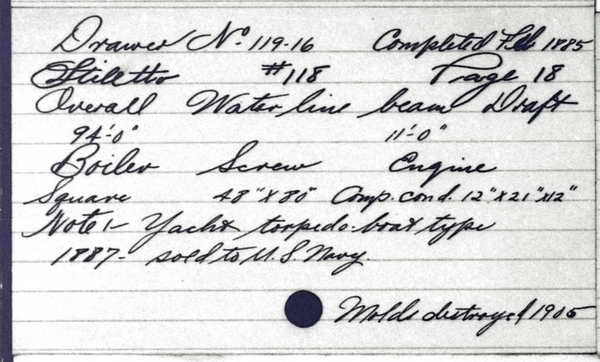 Drawer No. 119-16 Completed Feb 1885
Stiletto #118 Page 18
Overall Water line beam Draft
94'-0" 11'-0"
Boiler Screw Engine
Square 48" x 80" Comp. cond. 12" x 21" x 12"
Note:- Yacht torpedo-boat type
1887- sold to U.S. Navy.
Molds destroyed 1905